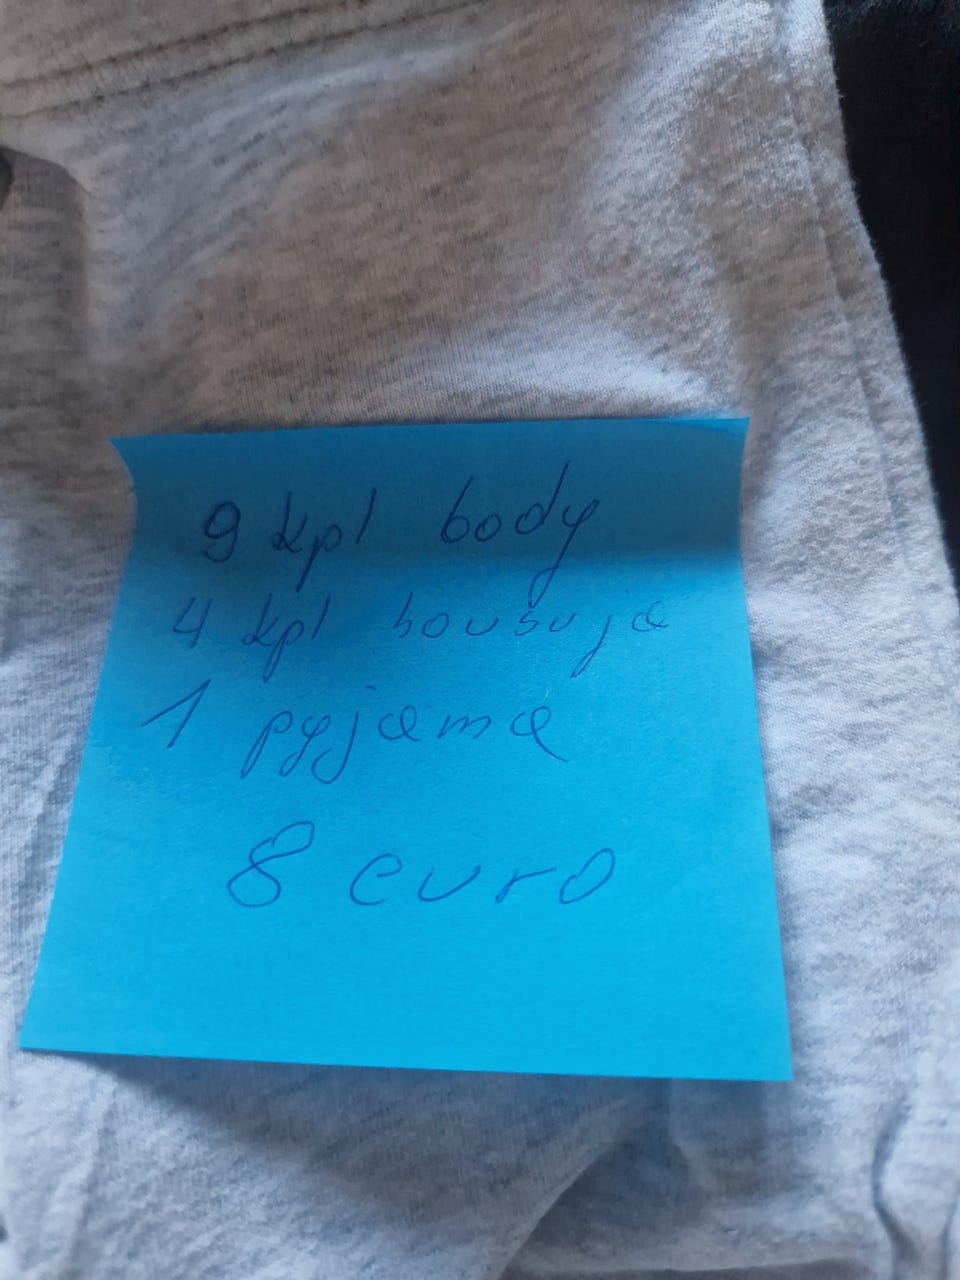 9 kpl body
4 kpl housuja
1 pyjama
8 euro